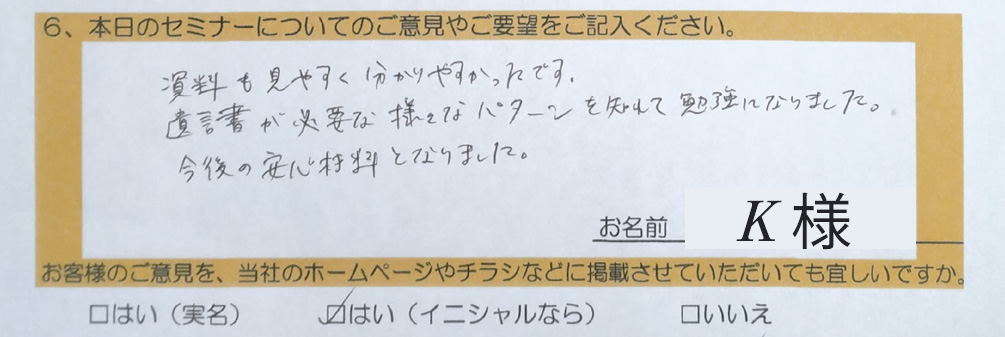 6、本日のセミナーについてのご意見やご要望をご記入ください。
資料も見やすく分かりやすかったです。
遺言書が必要な様々なパターンを知れて勉強になりました。
今後の安心材料となりました。
お名前 K様
お客様のご意見を、当社のホームページやチラシなどに掲載させていただいても宜しいですか。
□はい（実名） ☑はい（イニシャルなら） □いいえ